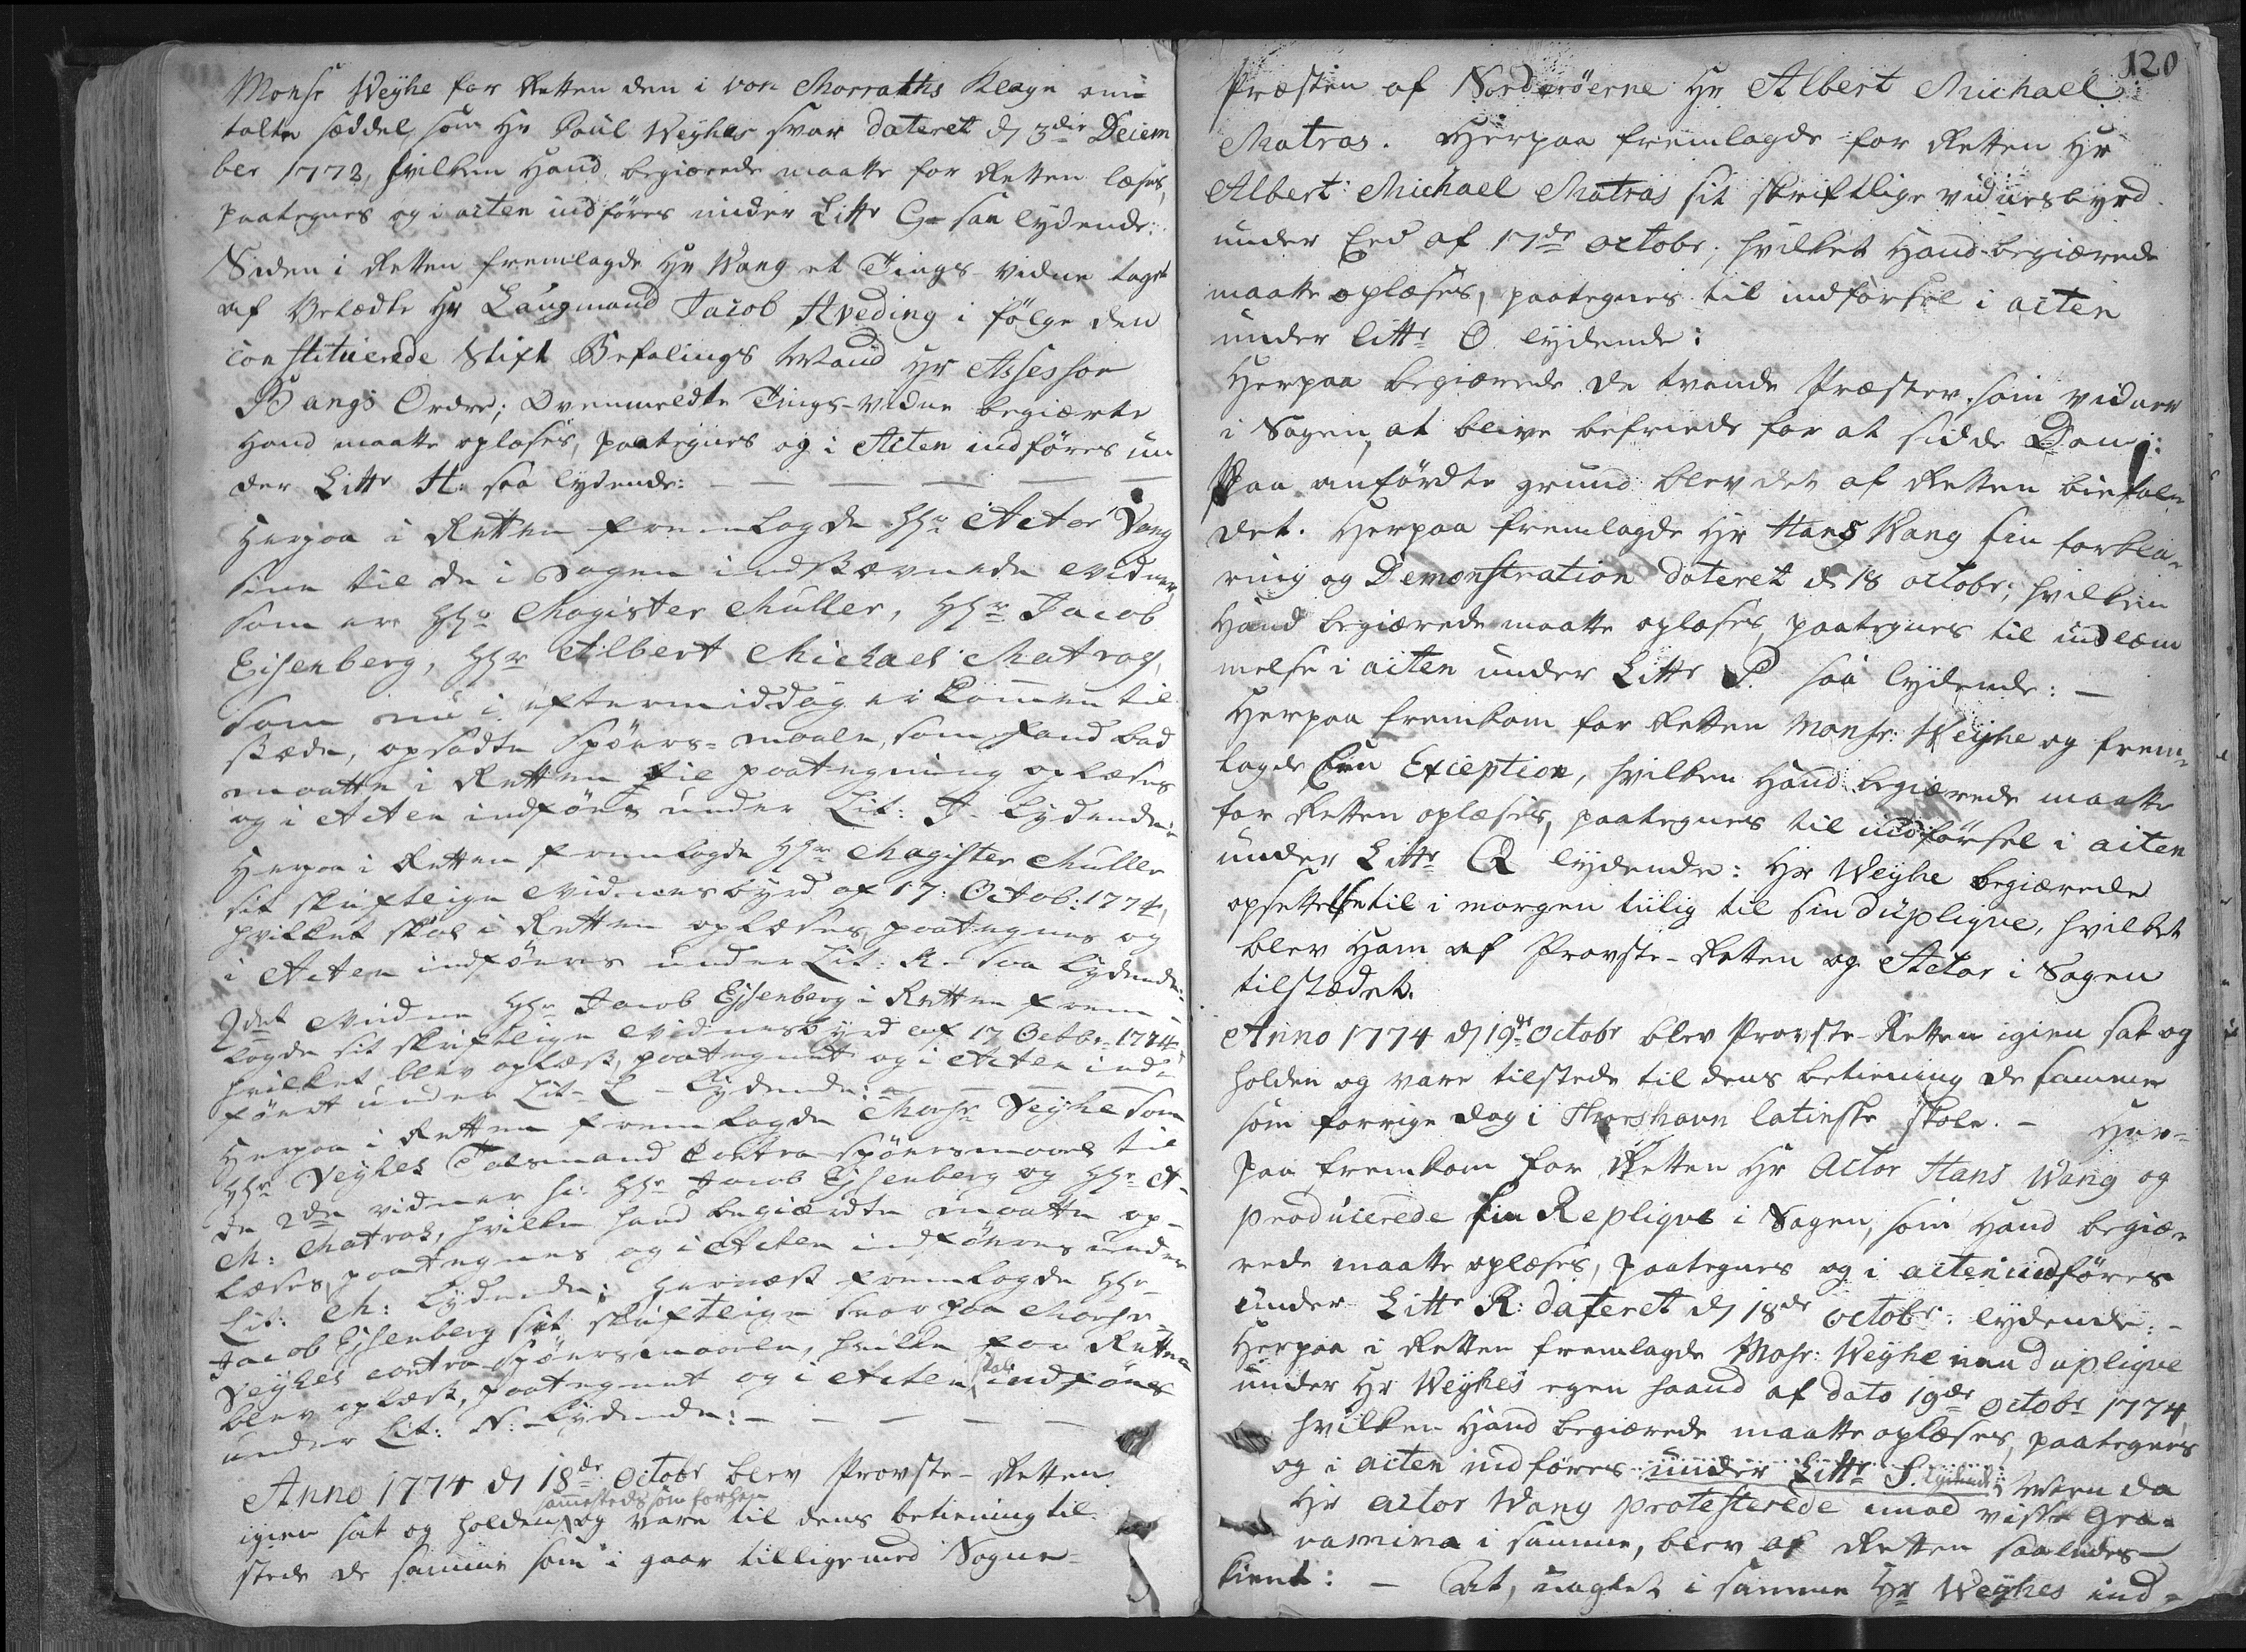 Monsr Weyhe for Retten den i von Morraths Klage om
talte Seddel, som Hr Poul Weyhes svar dateret d 3die Decem
ber 1772, hvilken Hand begiærede maatte for Retten læses,
paategnes og i acten indføres under Littr G= saa lydende:
Siden i Retten fremlagde Hr Wang et Tings-vidne taget
af Velædle Hr Laugmand Jacob Hveding i følge den
constituerede Stift Befalings Mand Hr Assessor
Bangs Ordre; Ovenmeldte Tings-vidne begiærte
Hand maatte oplæses, paategnes og i Acten indføres un
der Littr H: saa lydende: — — — — —
Herpaa i Retten fremlagde Hr Actor Vang
sine til de i Sagen indstævnede Vidner,
som er Hr Magister Müller, Hr Jacob
Eisenberg, Hr Albert Michael Matras,
som nu i eftermiddag er kommen til
stæde, opsadte Spørs-maale, som hand bad
maatte i Retten til paategning oplæses
og i Acten indføres under Lit: J- Lydende:
Herpaa i Retten fremlagde Hr Magister Müller
sit skriftlige Vidnesbyrd af 17: Octob: 1774,
hvilket skal i Retten oplæses, paategnes og
i Acten indføres under Lit: K- saa lydende:
2det Vidne Hr Jacob Ejsenberg i Retten frem-
lagde sit skriftlige Vidnesbyrd af 17 Octbr- 1774
hvilket blev oplæst, paategnet og i Acten ind-
ført under Lit- L- lydende: — — —
Herpaa i Retten fremlagde Monsr Veyhe som
Hr Veyhes Talsmand Contra-spørsmaal til
de 2de vidner hr: Hr Jacob Ejsenberg og Hr A-
M: Matras, hvilke hand begiærdte maatte op-
læses, paategnes og i Acten indføres under
Lit: M: lydende: hernæst fremlagde Hr
Jacob Ejsenberg sit skriftlige svar paa Monsr
Veyhes contra-spørsmaale, hvilke for Retten
blev oplæst, paategnet og i Acten skal indføres
under Lit: N: lydende: — — — — —
Anno 1774 d 18de Octobr blev Provste-Retten
sammesteds som forhen
igien sat og holden, og vare til dens betiening til
stede de samme som i gaar tilligemed Sogne-
120
Præsten af Norderøerne Hr Albert Michael
Matras. Herpaa fremlagde for Retten Hr
Albert Michael Matras sit skriftlige vidnesbyrd
under Eed af 17de Octobr; hvilket Hand begiærede
maatte oplæses, paategnes til indførsel i acten
under littr O lydende:
Herpaa begiærede de tvende Præster som vidner
i Sagen, at blive befriede for at sidde Dom:
Paa anførdte grund blev det af Retten biefalt-
det. Herpaa fremlagde Hr Hans Wang sin forkla-
ring og Demonstration dateret d 18 octobr; hvilken
Hand begiærede maatte oplæses, paategnes til indlem
melse i acten under Littr P. saa lydende: —
Herpaa fremkom for Retten Monsr: Weyhe og frem-
lagde Een Exception, hvilken Hand begiærede maatte
for Retten oplæses, paategnes til indførsel i acten
under Littr Q lydende: Hr Weyhe begiærede
opsettelse til i morgen tiilig til sin duplique, hvilket
blev Ham af Provste-Retten og Actor i Sagen
tilstædet.
Anno 1774 d 19de Octobr blev Provste-Retten igien sat og
holden og vare tilstede til dens betiening de samme
som forrige dag i Thorshavn latinske skole. — Her-
paa fremkom for Retten Hr Actor Hans Wang og
producerede sin Replique i Sagen, som Hand begiæ-
rede maatte oplæses, paategnes og i acten indføres
under Littr R: dateret d 18de octobr: lydende: —
Herpaa i Retten fremlagde Mosr: Weyhe een duplique
under Hr Weyhes egen haand af dato 19de octobr 1774,
hvilken Hand begiærede maatte oplæses, paategnes
og i acten indføres under Littr S. lydende: Men da
Hr actor Wang protesterede imod visse gra-
vamina i samme, blev af Retten saaledes
kient: — At, uagtet i samme Hr Weyhes ind-